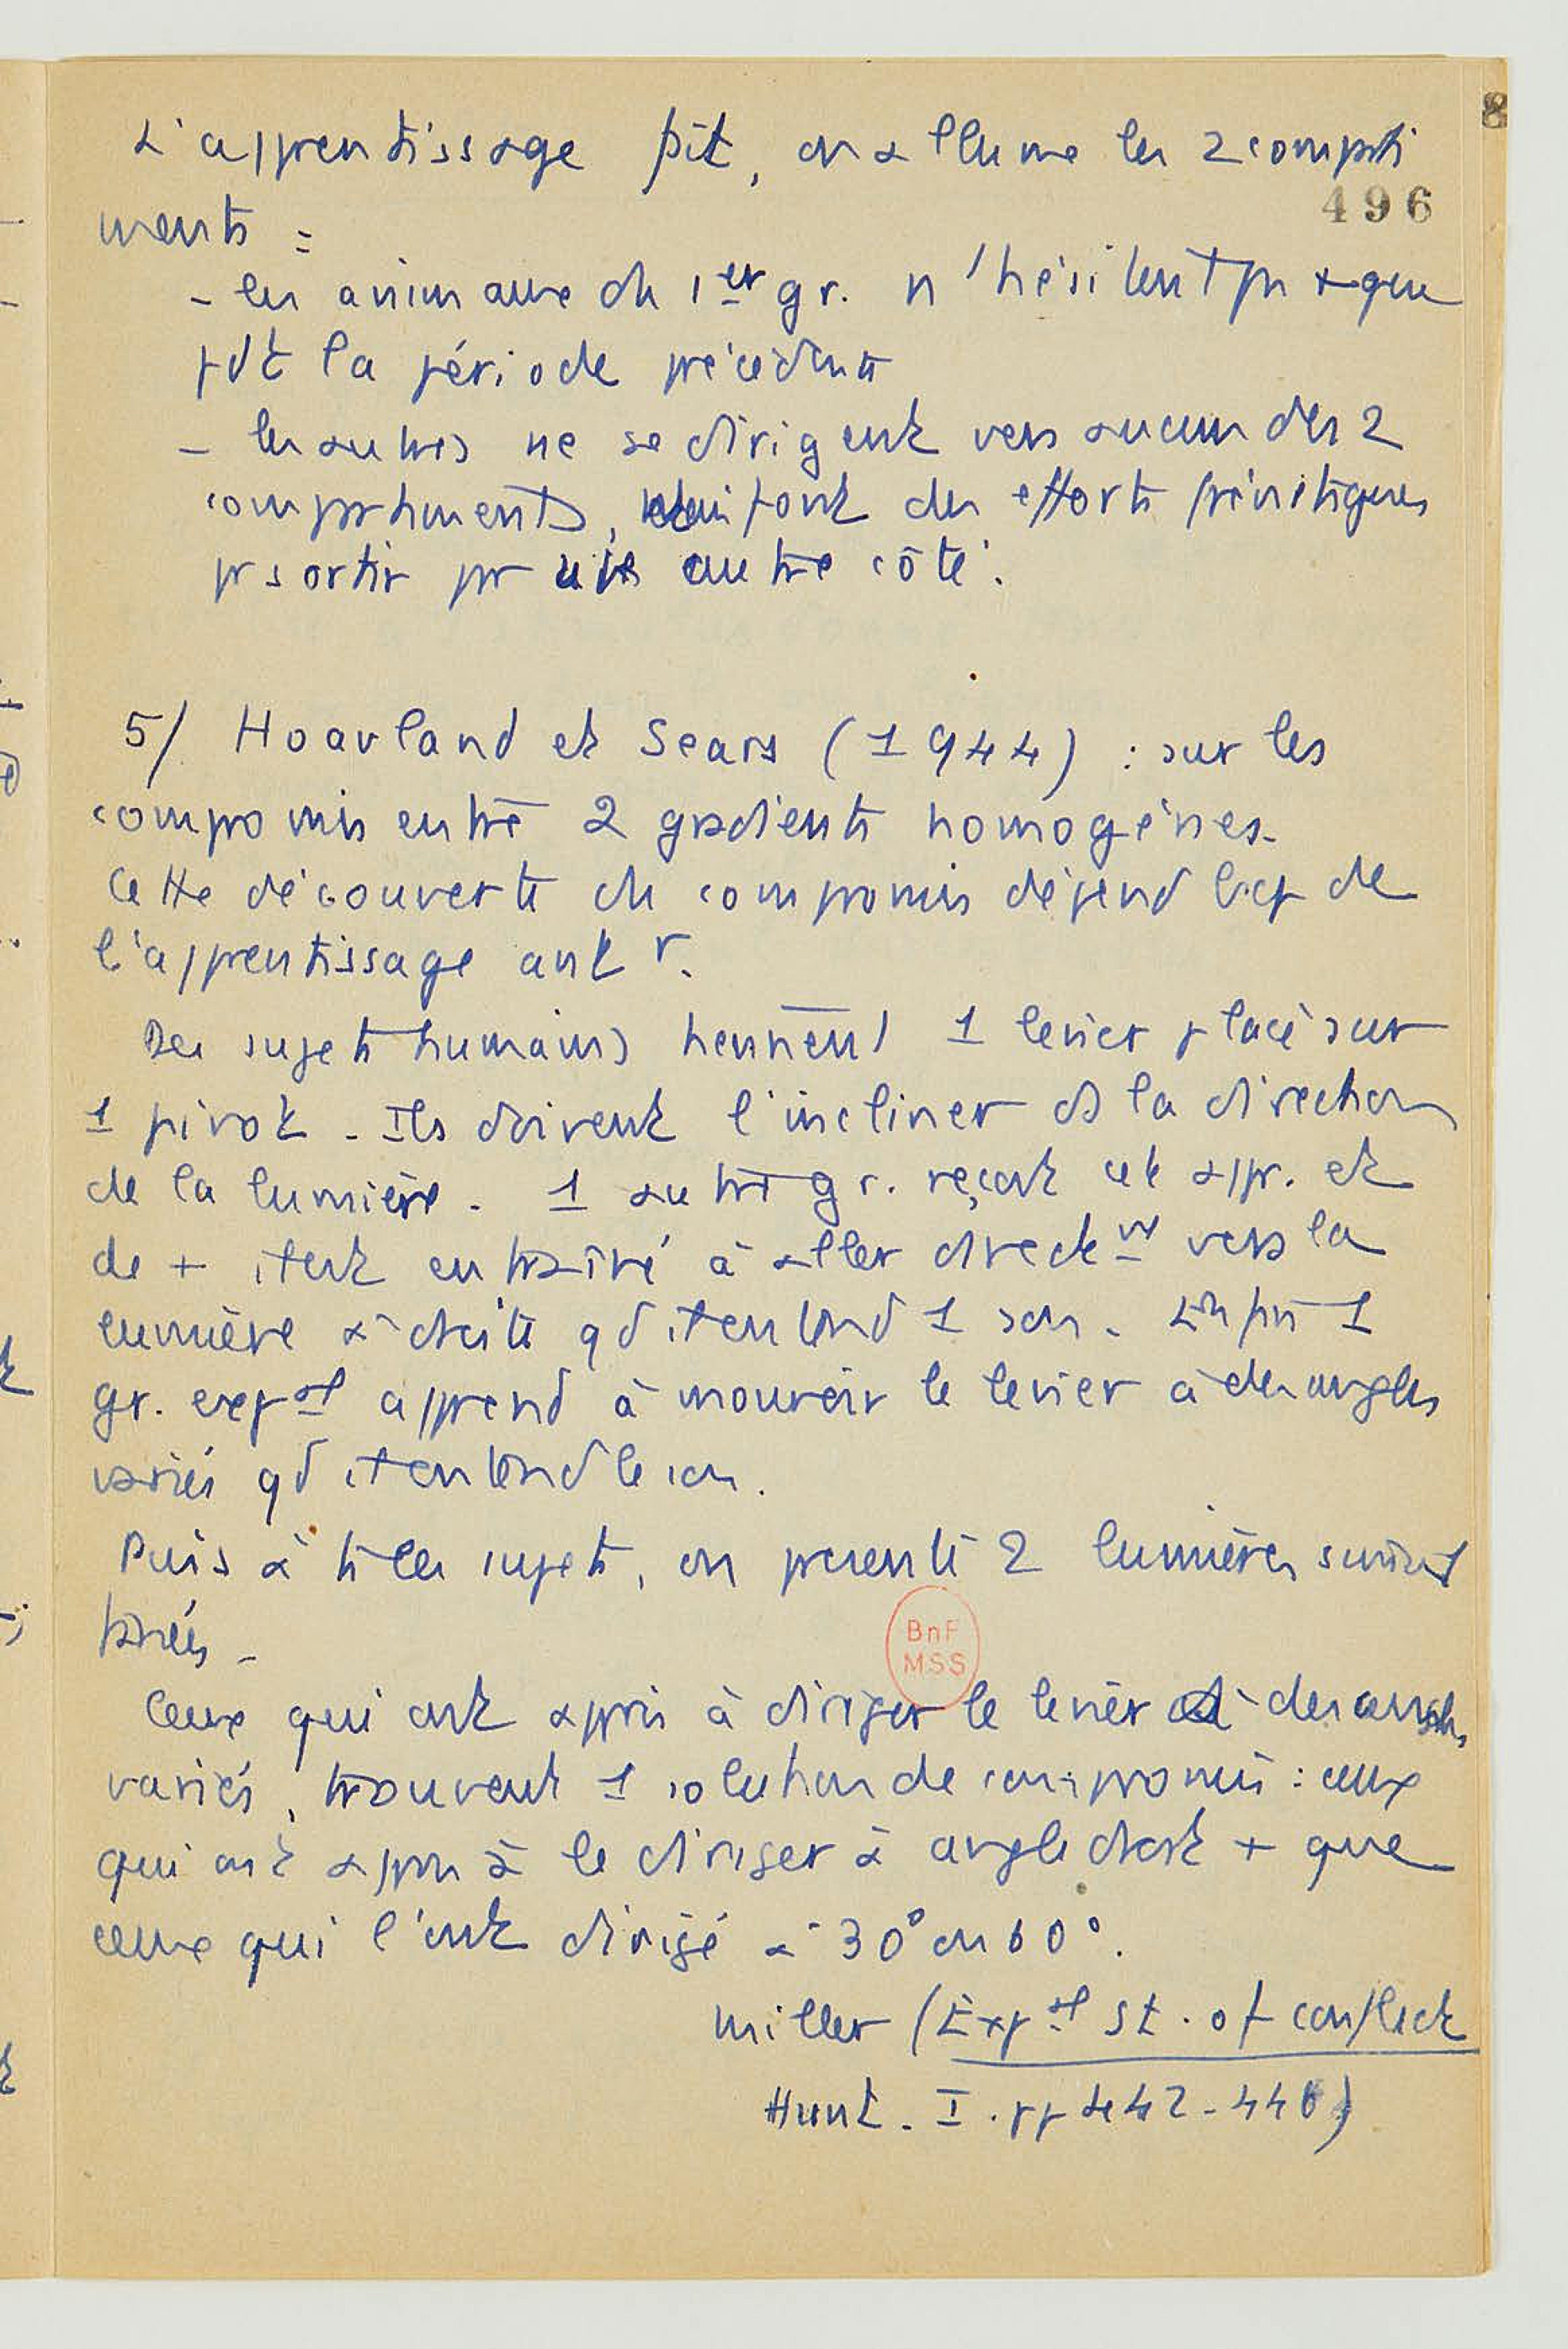 L'apprentissage fait, on allume les 2 comparti
496
ments :
- les animaux du 1er gr. n'hésitent pas + que
pdt la période précédente
- les autres ne se dirigent vers aucun des 2
compartiments, font des efforts frénétiques
pr sortir par autre côté.
5/ Hoavland et Sears (1944) : sur les
compromis entre 2 gradients homogènes.
Cette découverte du compromis dépend bcp de
l'apprentissage antr.
Des sujets humains tiennent 1 levier placé sur
1 pivot. Ils doivent l'incliner ds la direction
de la lumière. 1 autre gr. reçoit cet appr. et
de + est entraîné à aller directnt vers la
lumière à droite qd il entend 1 son. Enfin 1
gr. expal apprend à mouvoir le levier à des angles
variés qd il entend le son.
Puis à ts les sujets, on présente 2 lumières simul
tanées.
Ceux qui ont appris à diriger le levier à des angles
variés, trouvent 1 solution de compromis : ceux
qui ont appris à le diriger à angle droit + que
ceux qui l'ont dirigé à 30° ou 60°.
Miller (Expal St. of conflict
Hunt. I. pp 442-446)
BnF
MSS